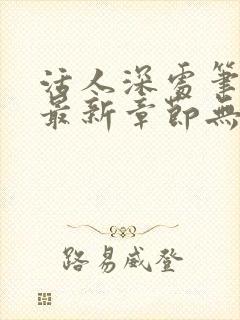 活人深處筆
最新章節無
路易威登